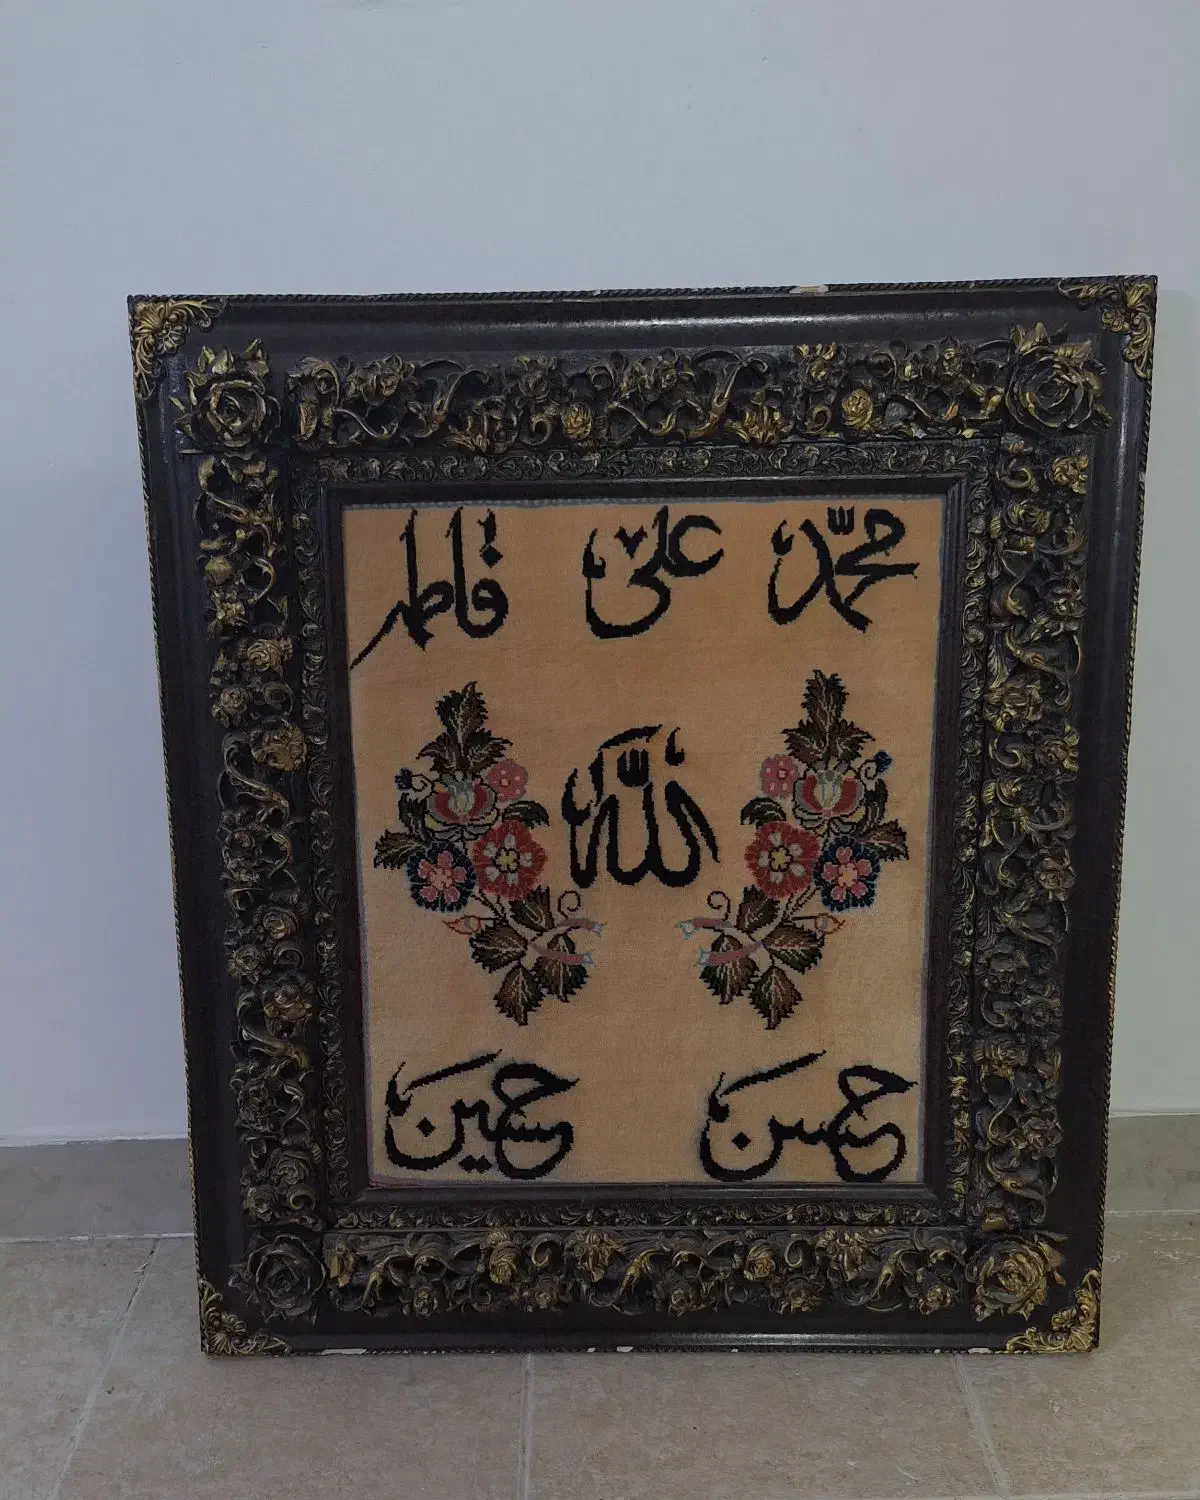 محمّد علی فاطمه
الله
حسن حسین